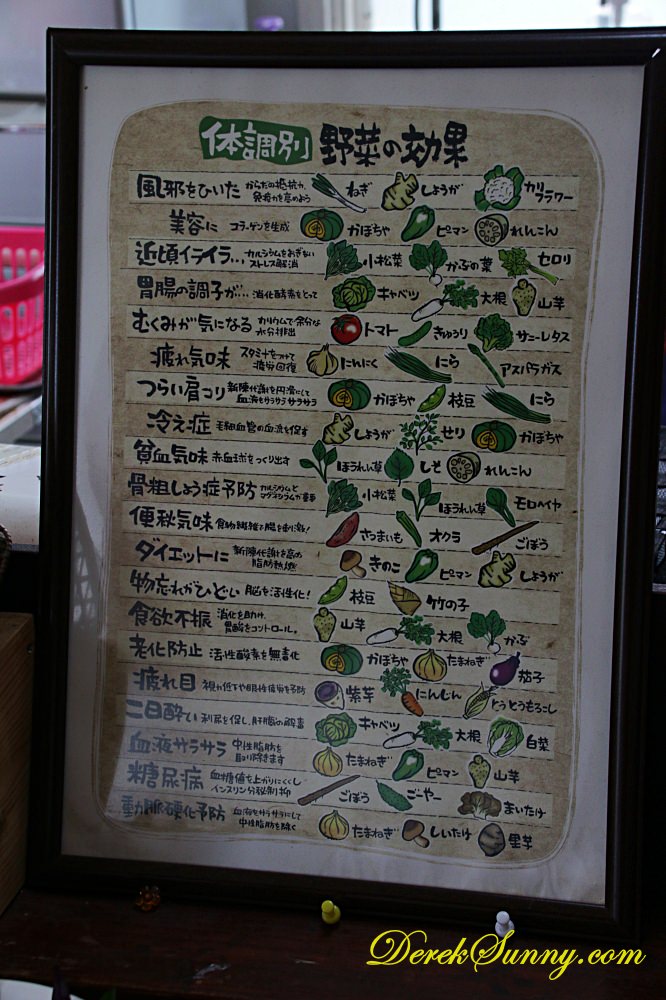 体調別 野菜の効果
風邪をひいた からだの抵抗力、免疫力を高めよう ねぎ しょうが カリフラワー
美容に コラーゲンを生成 かぼちゃ ピーマン れんこん
近頃イライラ… カルシウムをおぎない ストレス解消 小松菜 かぶの葉 セロリ
胃腸の調子が… 消化酵素をとって キャベツ 大根 山芋
むくみが気になる カリウムで余分な水分排出 トマト きゅうり サニーレタス
疲れ気味 スタミナをつけて疲労回復 にんにく にら アスパラガス
つらい肩コリ 新陳代謝を円滑にして血液をサラサラサラサラ かぼちゃ 枝豆 にら
冷え症 毛細血管の血流を促す しょうが せり かぼちゃ
貧血気味 赤血球をつくり出す ほうれん草 しそ れんこん
骨粗しょう症予防 カルシウムとマグネシウムが重要 小松菜 ほうれん草 モロヘイヤ
便秘気味 食物繊維で腸を刺激! さつまいも オクラ ごぼう
ダイエットに 新陳代謝を高め脂肪燃焼 きのこ ピーマン しょうが
物忘れがひどい 脳を活性化! 枝豆 竹の子
食欲不振 消化を助け、胃酸をコントロール。 山芋 大根 かぶ
老化防止 活性酸素を無毒化 かぼちゃ たまねぎ 茄子
疲れ目 視力低下や眼性疲労を予防 紫芋 にんじん とうとうもろこし
二日酔い 利尿を促し、肝臓の解毒 キャベツ 大根 白菜
血液サラサラ 中性脂肪を取り除きます たまねぎ ピーマン 山芋
糖尿病 血糖値を上がりにくくし インスリン分泌制抑 ごぼう ごーやー まいたけ
動脈硬化予防 血液をサラサラにして中性脂肪を除く たまねぎ しいたけ 里芋
DerekSunny.com